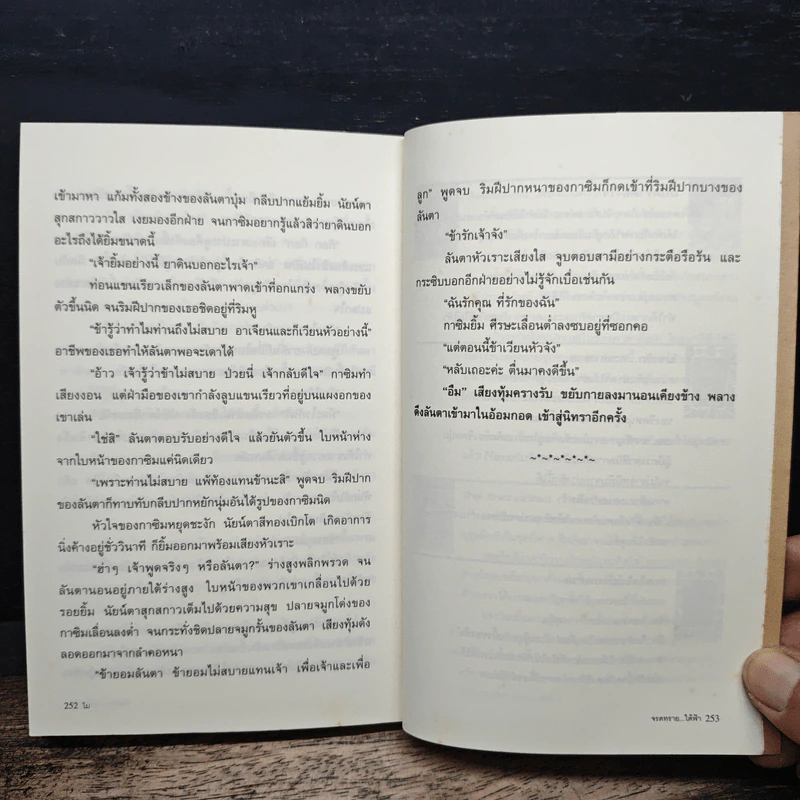 เข้ามาหา แก้มทั้งสองข้างของลันตาบุ๋ม กลีบปากแย้มยิ้ม นัยน์ตา
สุกสกาววาวใส เงยมองอีกฝ่าย จนกาซิมอยากรู้แล้วสิว่ายาดินบอก
อะไรถึงได้ยิ้มขนาดนี้
“เจ้ายิ้มอย่างนี้ ยาดินบอกอะไรเจ้า”
ท่อนแขนเรียวเล็กของลันตาพาดเข้าที่อกแกร่ง พลางขยับ
ตัวขึ้นนิด จนริมฝีปากของเธอชิดอยู่ที่ริมหู
“ข้ารู้ว่าทำไมท่านถึงไม่สบาย อาเจียนและก็เวียนหัวอย่างนี้”
อาชีพของเธอทำให้ลันตาพอจะเดาได้
“อ้าว เจ้ารู้ว่าข้าไม่สบาย ป่วยนี่ เจ้ากลับดีใจ” กาซิมทำ
เสียงงอน แต่ฝ่ามือของเขากำลังลูบแขนเรียวที่อยู่บนแผงอกของ
เขาเล่น
“ใช่สิ” ลันตาตอบรับอย่างดีใจ แล้วยันตัวขึ้น ใบหน้าห่าง
จากใบหน้าของกาซิมแค่นิดเดียว
“เพราะท่านไม่สบาย แพ้ท้องแทนข้านะสิ” พูดจบ ริมฝีปาก
ของลันตาก็ทาบทับกลีบปากหยักนุ่มอันได้รูปของกาซิมนิด
หัวใจของกาซิมหยุดชะงัก นัยน์ตาสีทองเบิกโต เกิดอาการ
นิ่งค้างอยู่ชั่ววินาที ก็ยิ้มออกมาพร้อมเสียงหัวเราะ
“ฮ่าๆ เจ้าพูดจริงๆ หรือลันตา?” ร่างสูงพลิกพรวด จน
ลันตานอนอยู่ภายใต้ร่างสูง ใบหน้าของพวกเขาเกลื่อนไปด้วย
รอยยิ้ม นัยน์ตาสุกสกาวเต็มไปด้วยความสุข ปลายจมูกโด่งของ
กาซิมเลื่อนลงต่ำ จนกระทั่งชิดปลายจมูกรั้นของลันตา เสียงทุ้มดัง
ลอดออกมาจากลำคอหนา
“ข้ายอมลันตา ข้ายอมไม่สบายแทนเจ้า เพื่อเจ้าและเพื่อ
252 โม
ลูก” พูดจบ ริมฝีปากหนาของกาซิมก็กดเข้าที่ริมฝีปากบางของ
ลันตา
“ข้ารักเจ้าจัง”
ลันตาหัวเราะเสียงใส จูบตอบสามีอย่างกระตือรือร้น และ
กระซิบบอกอีกฝ่ายอย่างไม่รู้จักเบื่อเช่นกัน
“ฉันรักคุณ ที่รักของฉัน”
กาซิมยิ้ม ศีรษะเลื่อนต่ำลงซบอยู่ที่ซอกคอ
“แต่ตอนนี้ข้าเวียนหัวจัง”
“หลับเถอะค่ะ ตื่นมาคงดีขึ้น”
“อืม” เสียงทุ้มครางรับ ขยับกายลงมานอนเคียงข้าง พลาง
ดึงลันตาเข้ามาในอ้อมกอด เข้าสู่นิทราอีกครั้ง
~*~*~*~*~*~
จรดทราย...ใต้ฟ้า 253